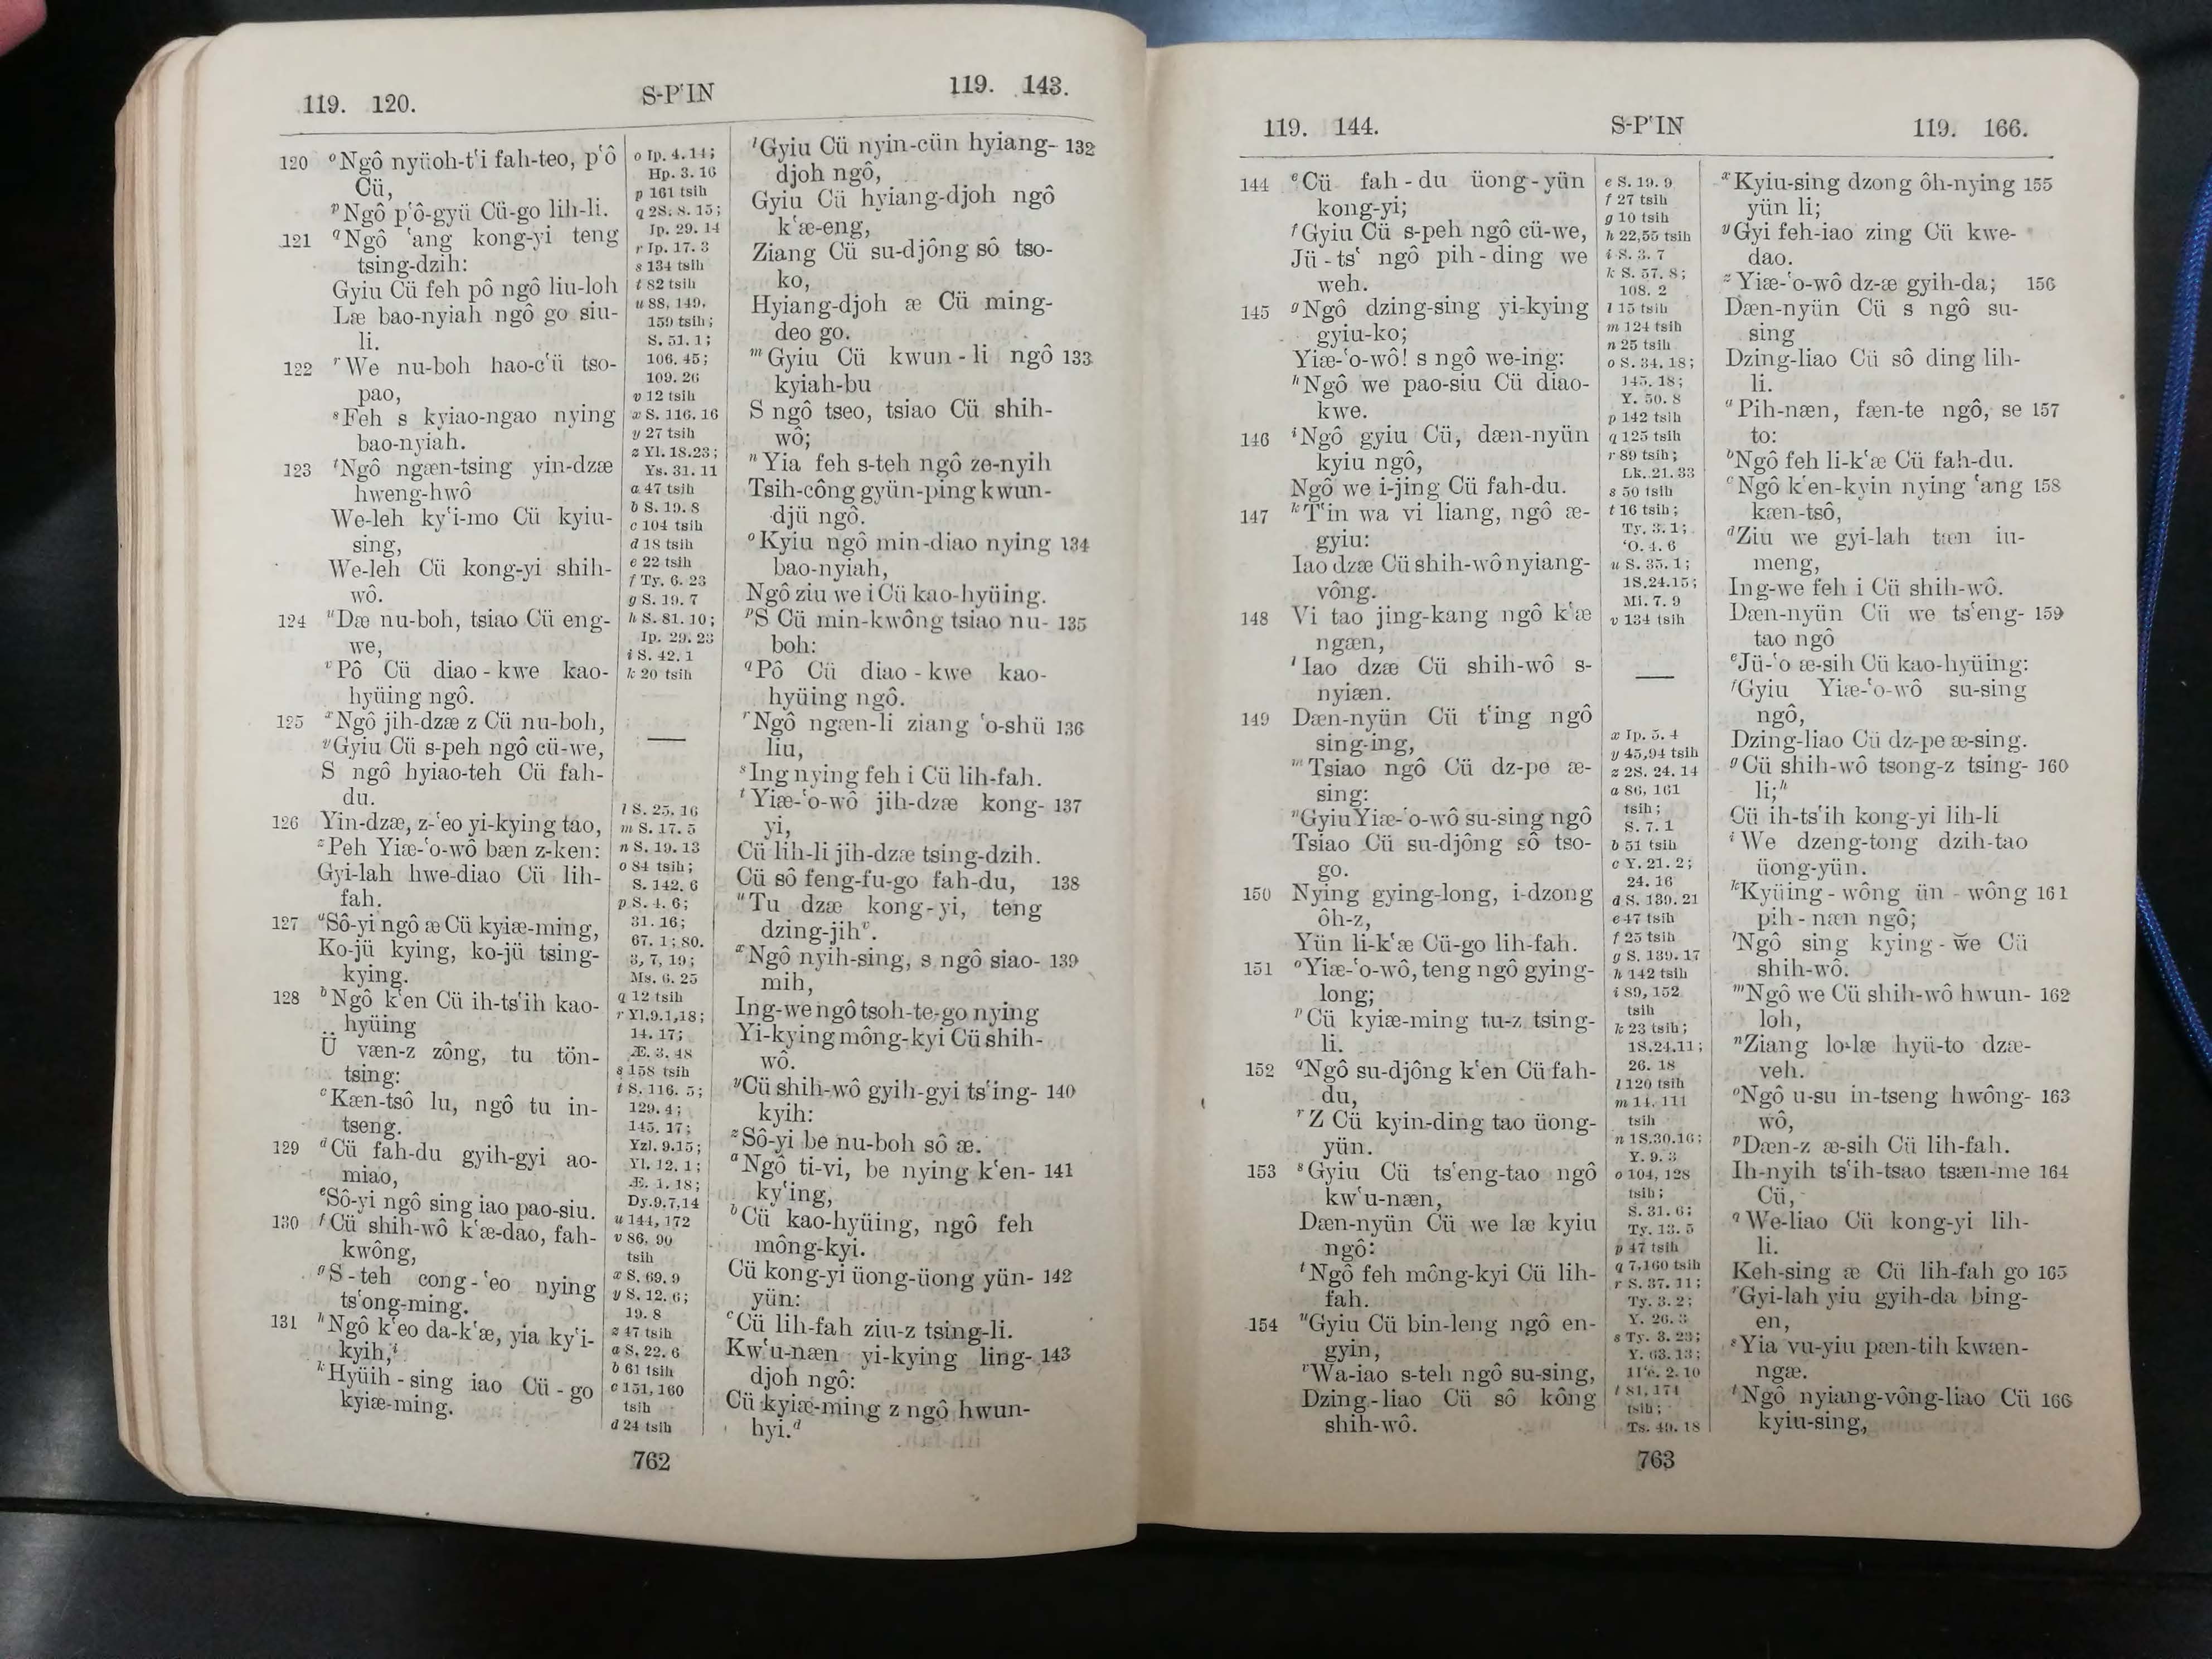 119. 120.
S-P'IN
119. 143.
120 ᵒNgô nyüoh-t'i fah-teo, p'ô
Cü,
ᵖNgô p'ô-gyü Cü-go lih-li.
121 ᑫNgô 'ang kong-yi teng
tsing-dzih:
Gyiu Cü feh pô ngô liu-loh
Læ bao-nyiah ngô go siu-
li.
122 ʳWe nu-boh hao-c'ü tso-
pao,
ˢFeh s kyiao-ngao nying
bao-nyiah.
123 ᵗNgô ngæn-tsing yin-dzæ
hweng-hwô
We-leh ky'i-mo Cü kyiu-
sing,
We-leh Cü kong-yi shih-
wô.
124 ᵘDæ nu-boh, tsiao Cü eng-
we,
ᵛPô Cü diao-kwe kao-
hyüing ngô.
125 ˣNgô jih-dzæ z Cü nu-boh,
ʸGyiu Cü s-peh ngô cü-we,
S ngô hyiao-teh Cü fah-
du.
126 Yin-dzæ, z-'eo yi-kying tao,
ᶻPeh Yiæ-'o-wô bæn z-ken:
Gyi-lah hwe-diao Cü lih-
fah.
127 ᵃSô-yi ngô æ Cü kyiæ-ming,
Ko-jü kying, ko-jü tsing-
kying.
128 ᵇNgô k'en Cü ih-ts'ih kao-
hyüing
Ü væn-z zông, tu tön-
tsing:
ᶜKæn-tsô lu, ngô tu in-
tseng.
129 ᵈCü fah-du gyih-gyi ao-
miao,
ᵉSô-yi ngô sing iao pao-siu.
130 ᶠCü shih-wô k'æ-dao, fah-
kwông,
ᵍS-teh cong-'eo nying
ts'ong-ming.
131 ʰNgô k'eo da-k'æ, yia ky'i-
kyih,ⁱ
ᵏHyüih-sing iao Cü-go
kyiæ-ming.
o Ip. 4. 14;
Hp. 3. 16
p 161 tsih
q 2S. 8. 15;
Ip. 29. 14
r Ip. 17. 3
s 134 tsih
t 82 tsih
u 88, 149,
159 tsih;
S. 51. 1;
106. 45;
109. 26
v 12 tsih
x S. 116. 16
y 27 tsih
z Yl. 18. 23;
Ys. 31. 11
a 47 tsih
b S. 19. 8
c 104 tsih
d 18 tsih
e 22 tsih
f Ty. 6. 23
g S. 19. 7
h S. 81. 10;
Ip. 29. 23
i S. 42. 1
k 20 tsih
l S. 25. 16
m S. 17. 5
n S. 19. 13
o 84 tsih;
S. 142. 6
p S. 4. 6;
31. 16;
67. 1; 80.
3, 7, 19;
Ms. 6. 25
q 12 tsih
r Yl. 9. 1, 18;
14. 17;
Æ. 3. 48
s 158 tsih
t S. 116. 5;
129. 4;
145. 17;
Yzl. 9. 15;
Yl. 12. 1;
Æ. 1. 18;
Dy. 9. 7, 14
u 144, 172
v 86, 90
tsih
x S. 69. 9
y S. 12. 6;
19. 8
z 47 tsih
a S. 22. 6
b 61 tsih
c 151, 160
tsih
d 24 tsih
ˡGyiu Cü nyin-cün hyiang- 132
djoh ngô,
Gyiu Cü hyiang-djoh ngô
k'æ-eng,
Ziang Cü su-djông sô tso-
ko,
Hyiang-djoh æ Cü ming-
deo go.
ᵐGyiu Cü kwun-li ngô 133
kyiah-bu
S ngô tseo, tsiao Cü shih-
wô;
ⁿYia feh s-teh ngô ze-nyih
Tsih-công gyün-ping kwun-
djü ngô.
ᵒKyiu ngô min-diao nying 134
bao-nyiah,
Ngô ziu we i Cü kao-hyüing.
ᵖS Cü min-kwông tsiao nu- 135
boh:
ᑫPô Cü diao-kwe kao-
hyüing ngô.
ʳNgô ngæn-li ziang 'o-shü 136
liu,
ˢIng nying feh i Cü lih-fah.
ᵗYiæ-'o-wô jih-dzæ kong- 137
yi,
Cü lih-li jih-dzæ tsing-dzih.
Cü sô feng-fu-go fah-du, 138
ᵘTu dzæ kong-yi, teng
dzing-jihᵛ.
ˣNgô nyih-sing, s ngô siao- 139
mih,
Ing-we ngô tsoh-te-go nying
Yi-kying mông-kyi Cü shih-
wô.
ʸCü shih-wô gyih-gyi ts'ing- 140
kyih:
ᶻSô-yi be nu-boh sô æ.
ᵃNgô ti-vi, be nying k'en- 141
ky'ing,
ᵇCü kao-hyüing, ngô feh
mông-kyi.
Cü kong-yi üong-üong yün- 142
yün:
ᶜCü lih-fah ziu-z tsing-li.
Kw'u-næn yi-kying ling- 143
djoh ngô:
Cü kyiæ-ming z ngô hwun-
hyi.ᵈ
762
119. 144.
S-P'IN
119. 166.
144 ᵉCü fah-du üong-yün
kong-yi;
ᶠGyiu Cü s-peh ngô cü-we,
Jü-ts' ngô pih-ding we
weh.
145 ᵍNgô dzing-sing yi-kying
gyiu-ko;
Yiæ-'o-wô! s ngô we-ing:
ʰNgô we pao-siu Cü diao-
kwe.
146 ⁱNgô gyiu Cü, dæn-nyün
kyiu ngô,
Ngô we i-jing Cü fah-du.
147 ᵏT'in wa vi liang, ngô æ-
gyiu:
Iao dzæ Cü shih-wô nyiang-
vông.
148 Vi tao jing-kang ngô k'æ
ngæn,
ˡIao dzæ Cü shih-wô s-
nyiæn.
149 Dæn-nyün Cü t'ing ngô
sing-ing,
ᵐTsiao ngô Cü dz-pe æ-
sing:
ⁿGyiu Yiæ-'o-wô su-sing ngô
Tsiao Cü su-djông sô tso-
go.
150 Nying gying-long, i-dzong
ôh-z,
Yün li-k'æ Cü-go lih-fah.
151 ᵒYiæ-'o-wô, teng ngô gying-
long;
ᵖCü kyiæ-ming tu-z tsing-
li.
152 ᑫNgô su-djông k'en Cü fah-
du,
ʳZ Cü kyin-ding tao üong-
yün.
153 ˢGyiu Cü ts'eng-tao ngô
kw'u-næn,
Dæn-nyün Cü we læ kyiu
ngô:
ᵗNgô feh mông-kyi Cü lih-
fah.
154 ᵘGyiu Cü bin-leng ngô en-
gyin,
ᵛWa-iao s-teh ngô su-sing,
Dzing-liao Cü sô kông
shih-wô.
e S. 19. 9
f 27 tsih
g 10 tsih
h 22, 55 tsih
i S. 3. 7
k S. 57. 8;
108. 2
l 15 tsih
m 124 tsih
n 25 tsih
o S. 34. 18;
145. 18;
Y. 50. 8
p 142 tsih
q 125 tsih
r 89 tsih;
Lk. 21. 33
s 50 tsih
t 16 tsih;
Ty. 3. 1;
'O. 4. 6
u S. 35. 1;
1S. 24. 15;
Mi. 7. 9
v 134 tsih
x Ip. 5. 4
y 45, 94 tsih
z 2S. 24. 14
a 86, 161
tsih;
S. 7. 1
b 51 tsih
c Y. 21. 2;
24. 16
d S. 139. 21
e 47 tsih
f 25 tsih
g S. 139. 17
h 142 tsih
i 89, 152
tsih
k 23 tsih;
1S. 24. 11;
26. 18
l 120 tsih
m 14, 111
tsih
n 1S. 30. 16;
Y. 9. 3
o 104, 128
tsih;
S. 31. 6;
Ty. 13. 5
p 47 tsih
q 7, 160 tsih
r S. 37. 11;
Ty. 3. 2;
Y. 26. 3
s Ty. 3. 23;
Y. 63. 13;
2. 10
t 81, 174
tsih;
Ts. 49. 18
ˣKyiu-sing dzong ôh-nying 155
yün li;
ʸGyi feh-iao zing Cü kwe-
dao.
ᶻYiæ-'o-wô dz-æ gyih-da; 156
Dæn-nyün Cü s ngô su-
sing
Dzing-liao Cü sô ding lih-
li.
ᵃPih-næn, fæn-te ngô, se 157
to:
ᵇNgô feh li-k'æ Cü fah-du.
ᶜNgô k'en-kyin nying 'ang 158
kæn-tsô,
ᵈZiu we gyi-lah tæn iu-
meng,
Ing-we feh i Cü shih-wô.
Dæn-nyün Cü we ts'eng- 159
tao ngô
ᵉJü-'o æ-sih Cü kao-hyüing:
ᶠGyiu Yiæ-'o-wô su-sing
ngô,
Dzing-liao Cü dz-pe æ-sing.
ᵍCü shih-wô tsong-z tsing- 160
li;ʰ
Cü ih-ts'ih kong-yi lih-li
ⁱWe dzeng-tong dzih-tao
üong-yün.
ᵏKyüing-wông ün-wông 161
pih-næn ngô;
ˡNgô sing kying-we Cü
shih-wô.
ᵐNgô we Cü shih-wô hwun- 162
loh,
ⁿZiang lo-læ hyü-to dzæ-
veh.
ᵒNgô u-su in-tseng hwông- 163
wô,
ᵖDæn-z æ-sih Cü lih-fah.
Ih-nyih ts'ih-tsao tsæn-me 164
Cü,
ᑫWe-liao Cü kong-yi lih-
li.
Keh-sing æ Cü lih-fah go 165
ʳGyi-lah yiu gyih-da bing-
en,
ˢYia vu-yiu pæn-tih kwæn-
ngæ.
ᵗNgô nyiang-vông-liao Cü 166
kyiu-sing,
763